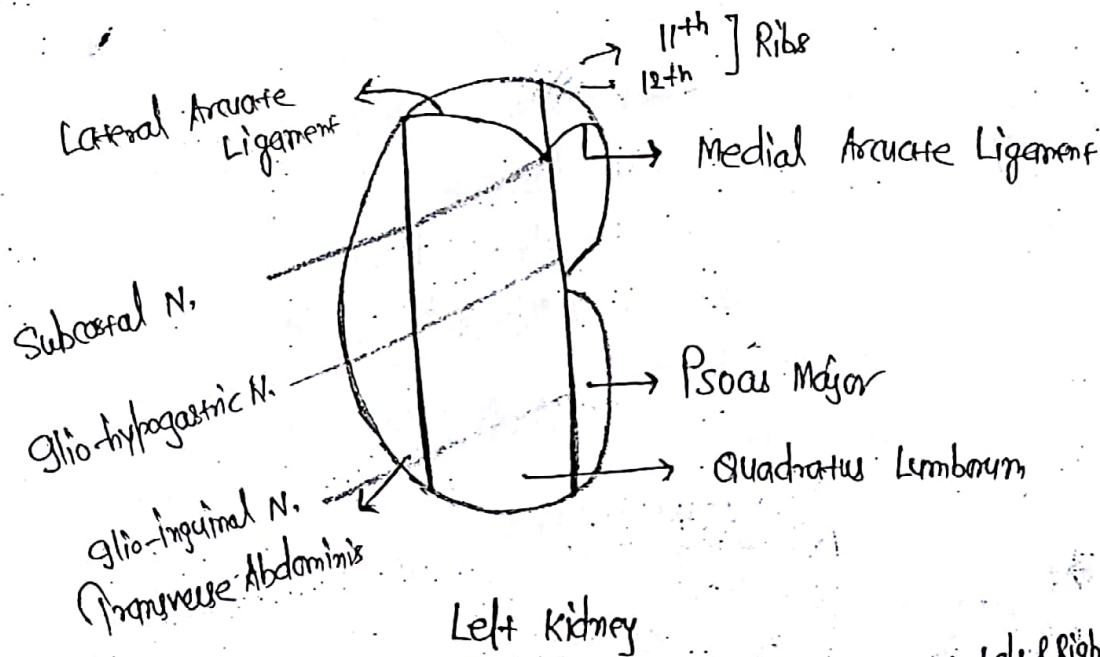 11th ] Ribs
12th
Lateral Arcuate
Ligament
Medial Arcuate Ligament
Subcostal N.
Ilio-hypogastric N.
Psoas Major
Quadratus Lumborum
Ilio-inguinal N.
Transverse Abdominis
Left Kidney